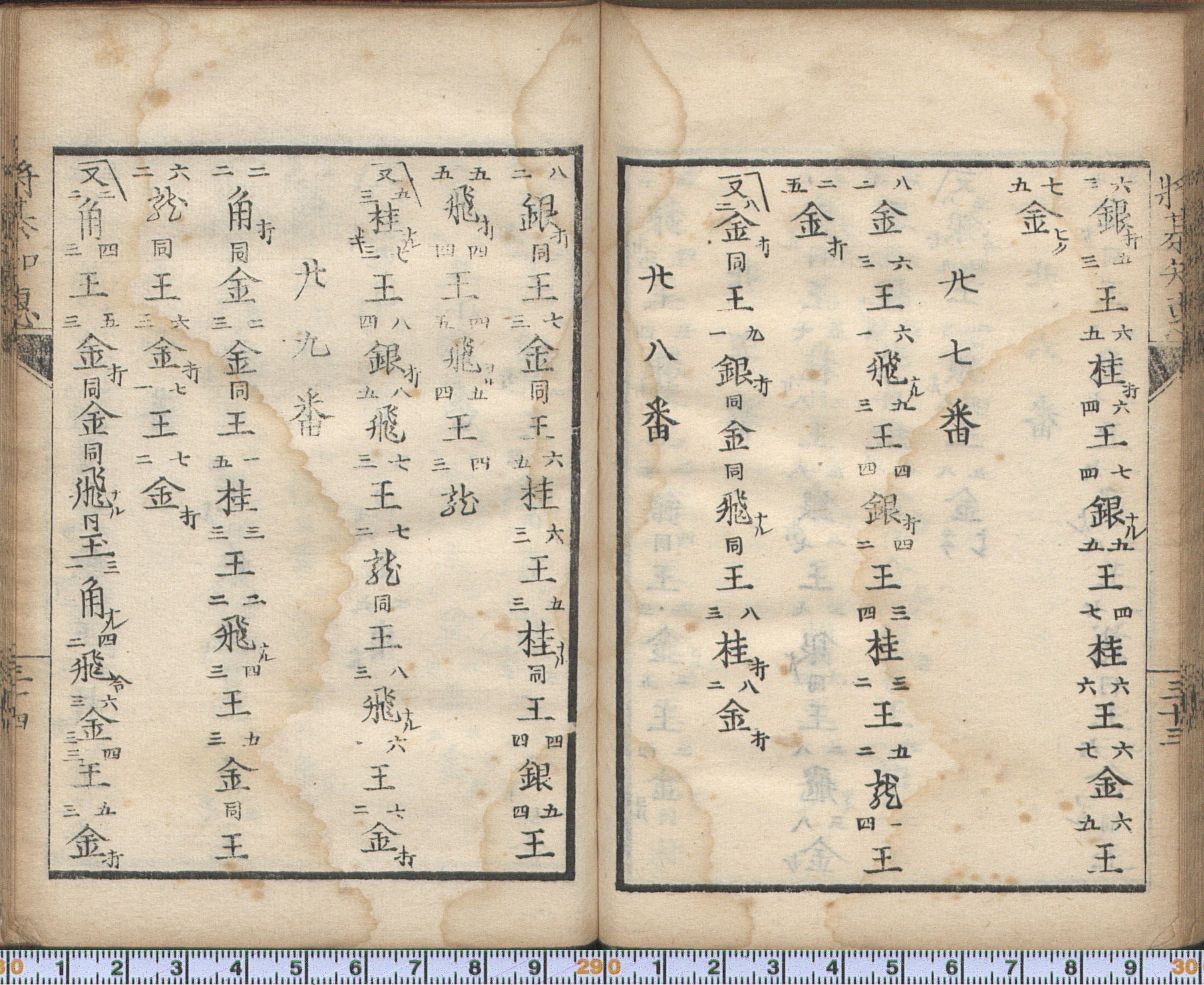 三十三
六三銀打五三王六五桂打六四王七四銀ナル九五王四七桂六六王六七金六九王
七九金ヒク
廿七番
八二金六三王六一飛ナル九三王四四銀打四二王三四桂三二王五二龍一四王
二五金打
又八二金打同王九一銀打同金同飛ナル同王八三桂打八二金打
廿八番
八二銀打同王七三金同王六五桂六三王五三桂ナル同王四四銀五四王
五五飛打四四王四五飛五四王四三龍
又五三桂ナル七三王八四銀打八五飛七三王七二龍同王八三飛ナル六一王七二金打
廿九番
二二角打同金二三金同王一五桂三三王二二飛ナル四三王五三金同王
六二龍同王六三金打七一王七二金打
又二二角四三王五三金打同金同飛ナル同王三一角ナル四二飛合六三金四三王五三金打
三十四